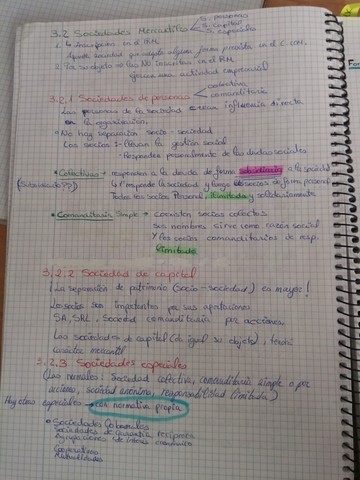 3.2 Sociedades Mercantiles
S. personas
S. capital
S. especiales
1. inscripción en el RM.
sociedad que adopte alguna forma prevista en el C. COM.
2. Por su objeto no las NO inscritas en el RM
ejerza una actividad empresarial
3.2.1 Sociedades de personas
colectiva
comanditaria
Las personas de la sociedad crean influencia directa
en la organización.
No hay separación socio - sociedad
Los socios : - llevan la gestión social
- Responden personalmente de las deudas sociales
* Colectivas → responden a la deuda de forma subsidiaria a la sociedad
1º responde la sociedad y luego los socios de forma personal
Todos los socios Personal, ilimitada y solidariamente
* Comanditaria Simple → Coexisten socios colectivos
sus nombres sirve como razón social
Y los socios comanditarios de resp.
limitada
3.2.2 Sociedad de capital
La separación de patrimonio (socio - sociedad) es mayor!
Los socios son importantes por sus aportaciones
SA, SRL, Sociedad comanditaria por acciones,
Las sociedades de capital (da igual su objeto), tendrá
carácter mercantil
3.2.3 Sociedades especiales
(Las normales: Sociedad colectiva, comanditaria simple o por
acciones, sociedad anónima, responsabilidad limitada)
Hay otras especiales → con normativa propia
Sociedades Laborales
Sociedades de Garantía recíproca
Agrupaciones de interés económico
Cooperativas
Mutualidades